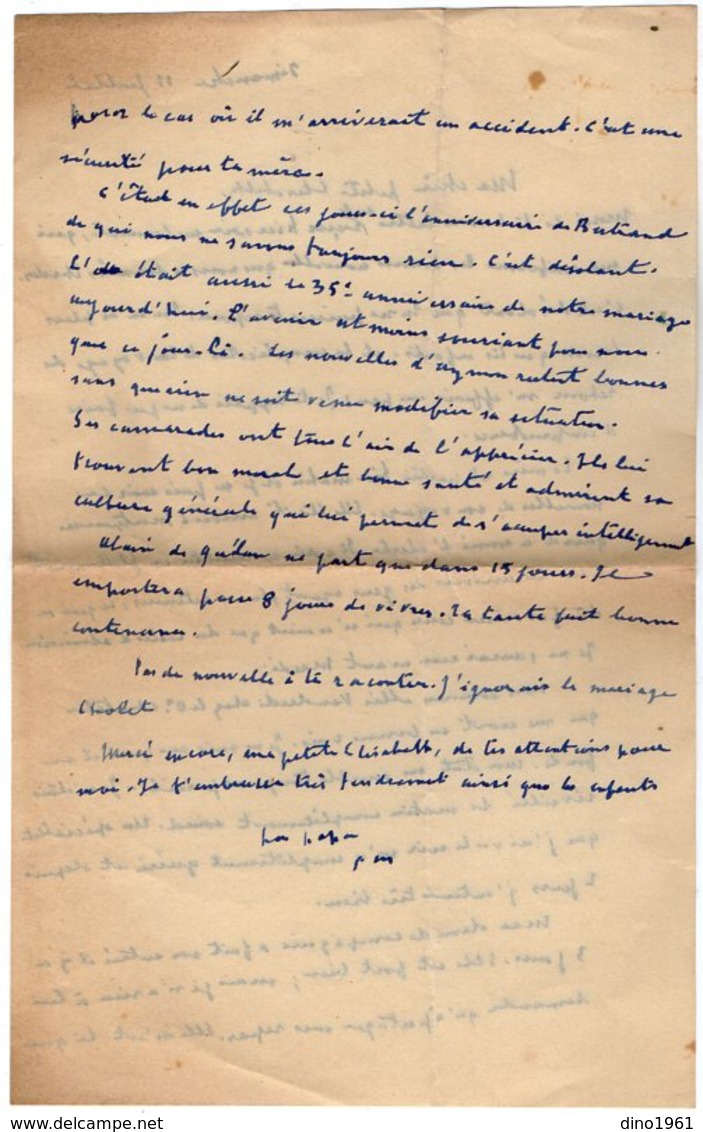 poser le cas où il m'arriverait un accident. C'est une
sécurité pour ta mère.
C'était en effet ces jours-ci l'anniversaire de Bertrand
de qui nous ne savons toujours rien. C'est désolant.
C'était aussi le 35e anniversaire de notre mariage
aujourd'hui. L'avenir est moins souriant pour nous
que ce jour-là. Les nouvelles d'Aymon restent bonnes
sans que rien ne soit venu modifier sa situation.
Ses camarades ont tous l'air de l'apprécier. Ils lui
trouvent bon moral et bonne santé et admirent sa
culture générale qui lui permet de s'occuper intelligemment
Alain de ne part que dans 15 jours. Il
emportera pour 8 jours de vivres. Ta tante fait bonne
contenance.
Pas de nouvelle à te raconter. J'ignorais le mariage
Cholet
Merci encore, ma petite Elisabeth, de tes attentions pour
moi. Je t'embrasse très tendrement ainsi que les enfants
ton papa
dino1961